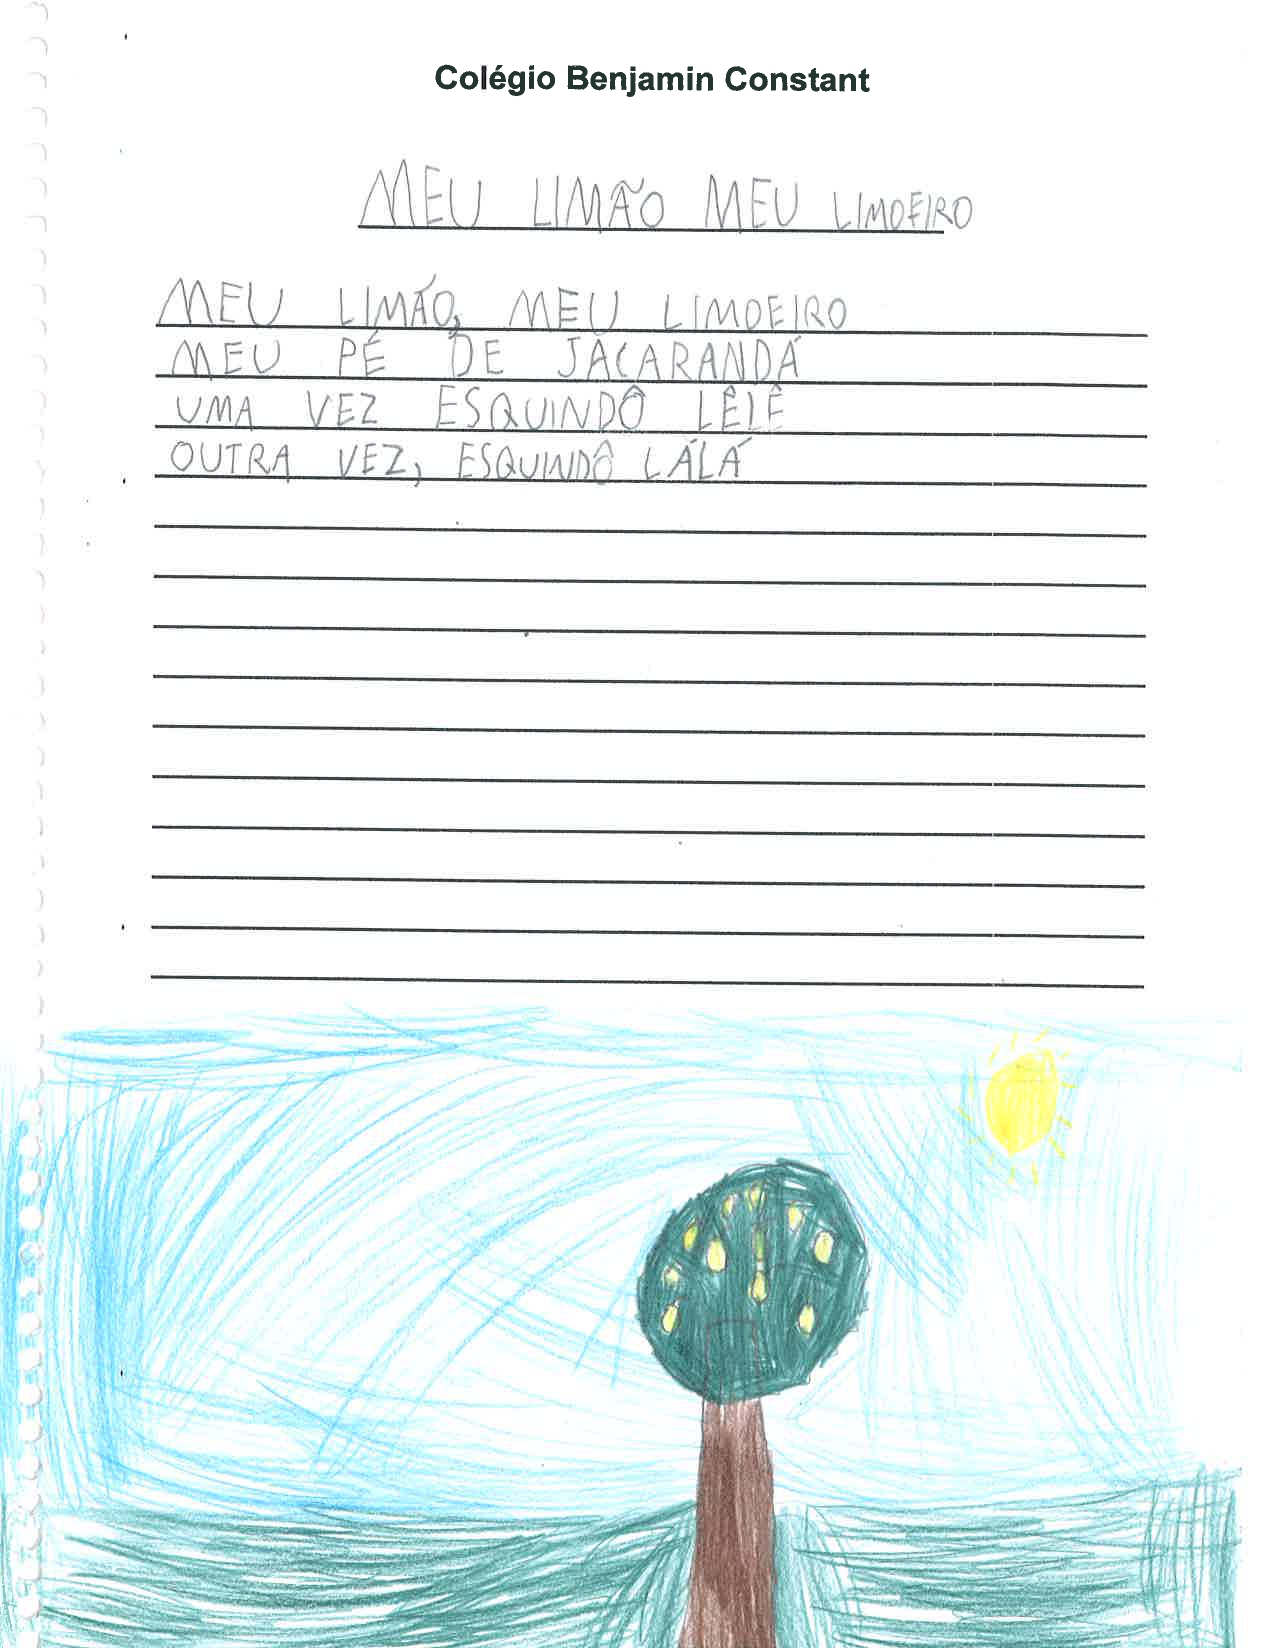 Colégio Benjamin Constant
MEU LIMÃO MEU LIMOEIRO
MEU LIMÃO, MEU LIMOEIRO
MEU PÉ DE JACARANDÁ
UMA VEZ ESQUINDÔ LÊLÊ
OUTRA VEZ, ESQUINDÔ LÁLÁ